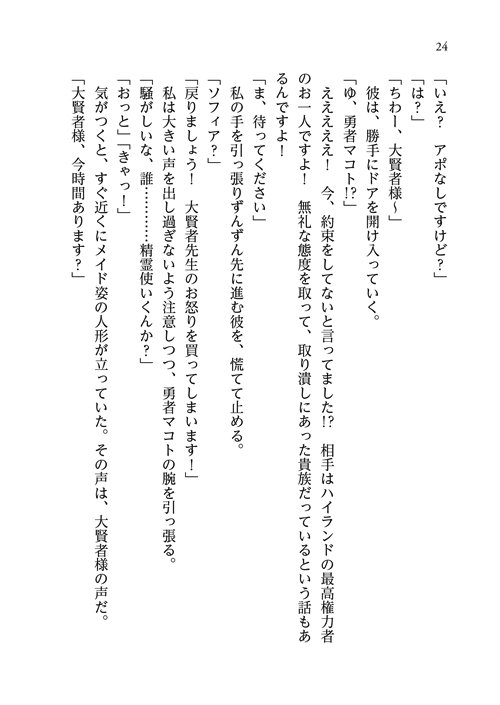 24
「いえ？　アポなしですけど？」
「は？」
「ちわー、大賢者様～」
　彼は、勝手にドアを開け入っていく。
「ゆ、勇者マコト!?」
　えええええ！　今、約束をしてないと言ってました!?　相手はハイランドの最高権力者
のお一人ですよ！　無礼な態度を取って、取り潰しにあった貴族だっているという話もあ
るんですよ！
「ま、待ってください」
　私の手を引っ張りずんずん先に進む彼を、慌てて止める。
「ソフィア？」
「戻りましょう！　大賢者先生のお怒りを買ってしまいます！」
　私は大きい声を出し過ぎないよう注意しつつ、勇者マコトの腕を引っ張る。
「騒がしいな、誰…………精霊使いくんか？」
「おっと」「きゃっ！」
　気がつくと、すぐ近くにメイド姿の人形が立っていた。その声は、大賢者様の声だ。
「大賢者様、今時間あります？」